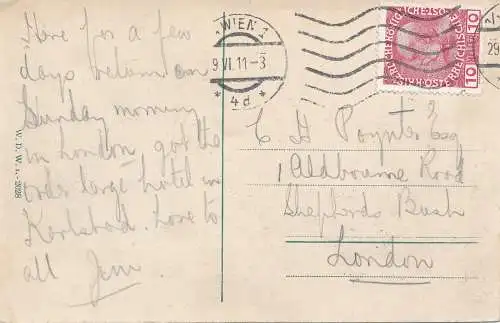 Here for a few
days return on
Sunday morning
in London got the
order large hotel in
Karlsbad. Love to
all Jem.
W. D. W. I. - 2028
WIEN 1
9.VI.11-3
* 4d *
29
10 10
C H Poynter Esq
1 Aldbourne Road
Shepherds Bush
London